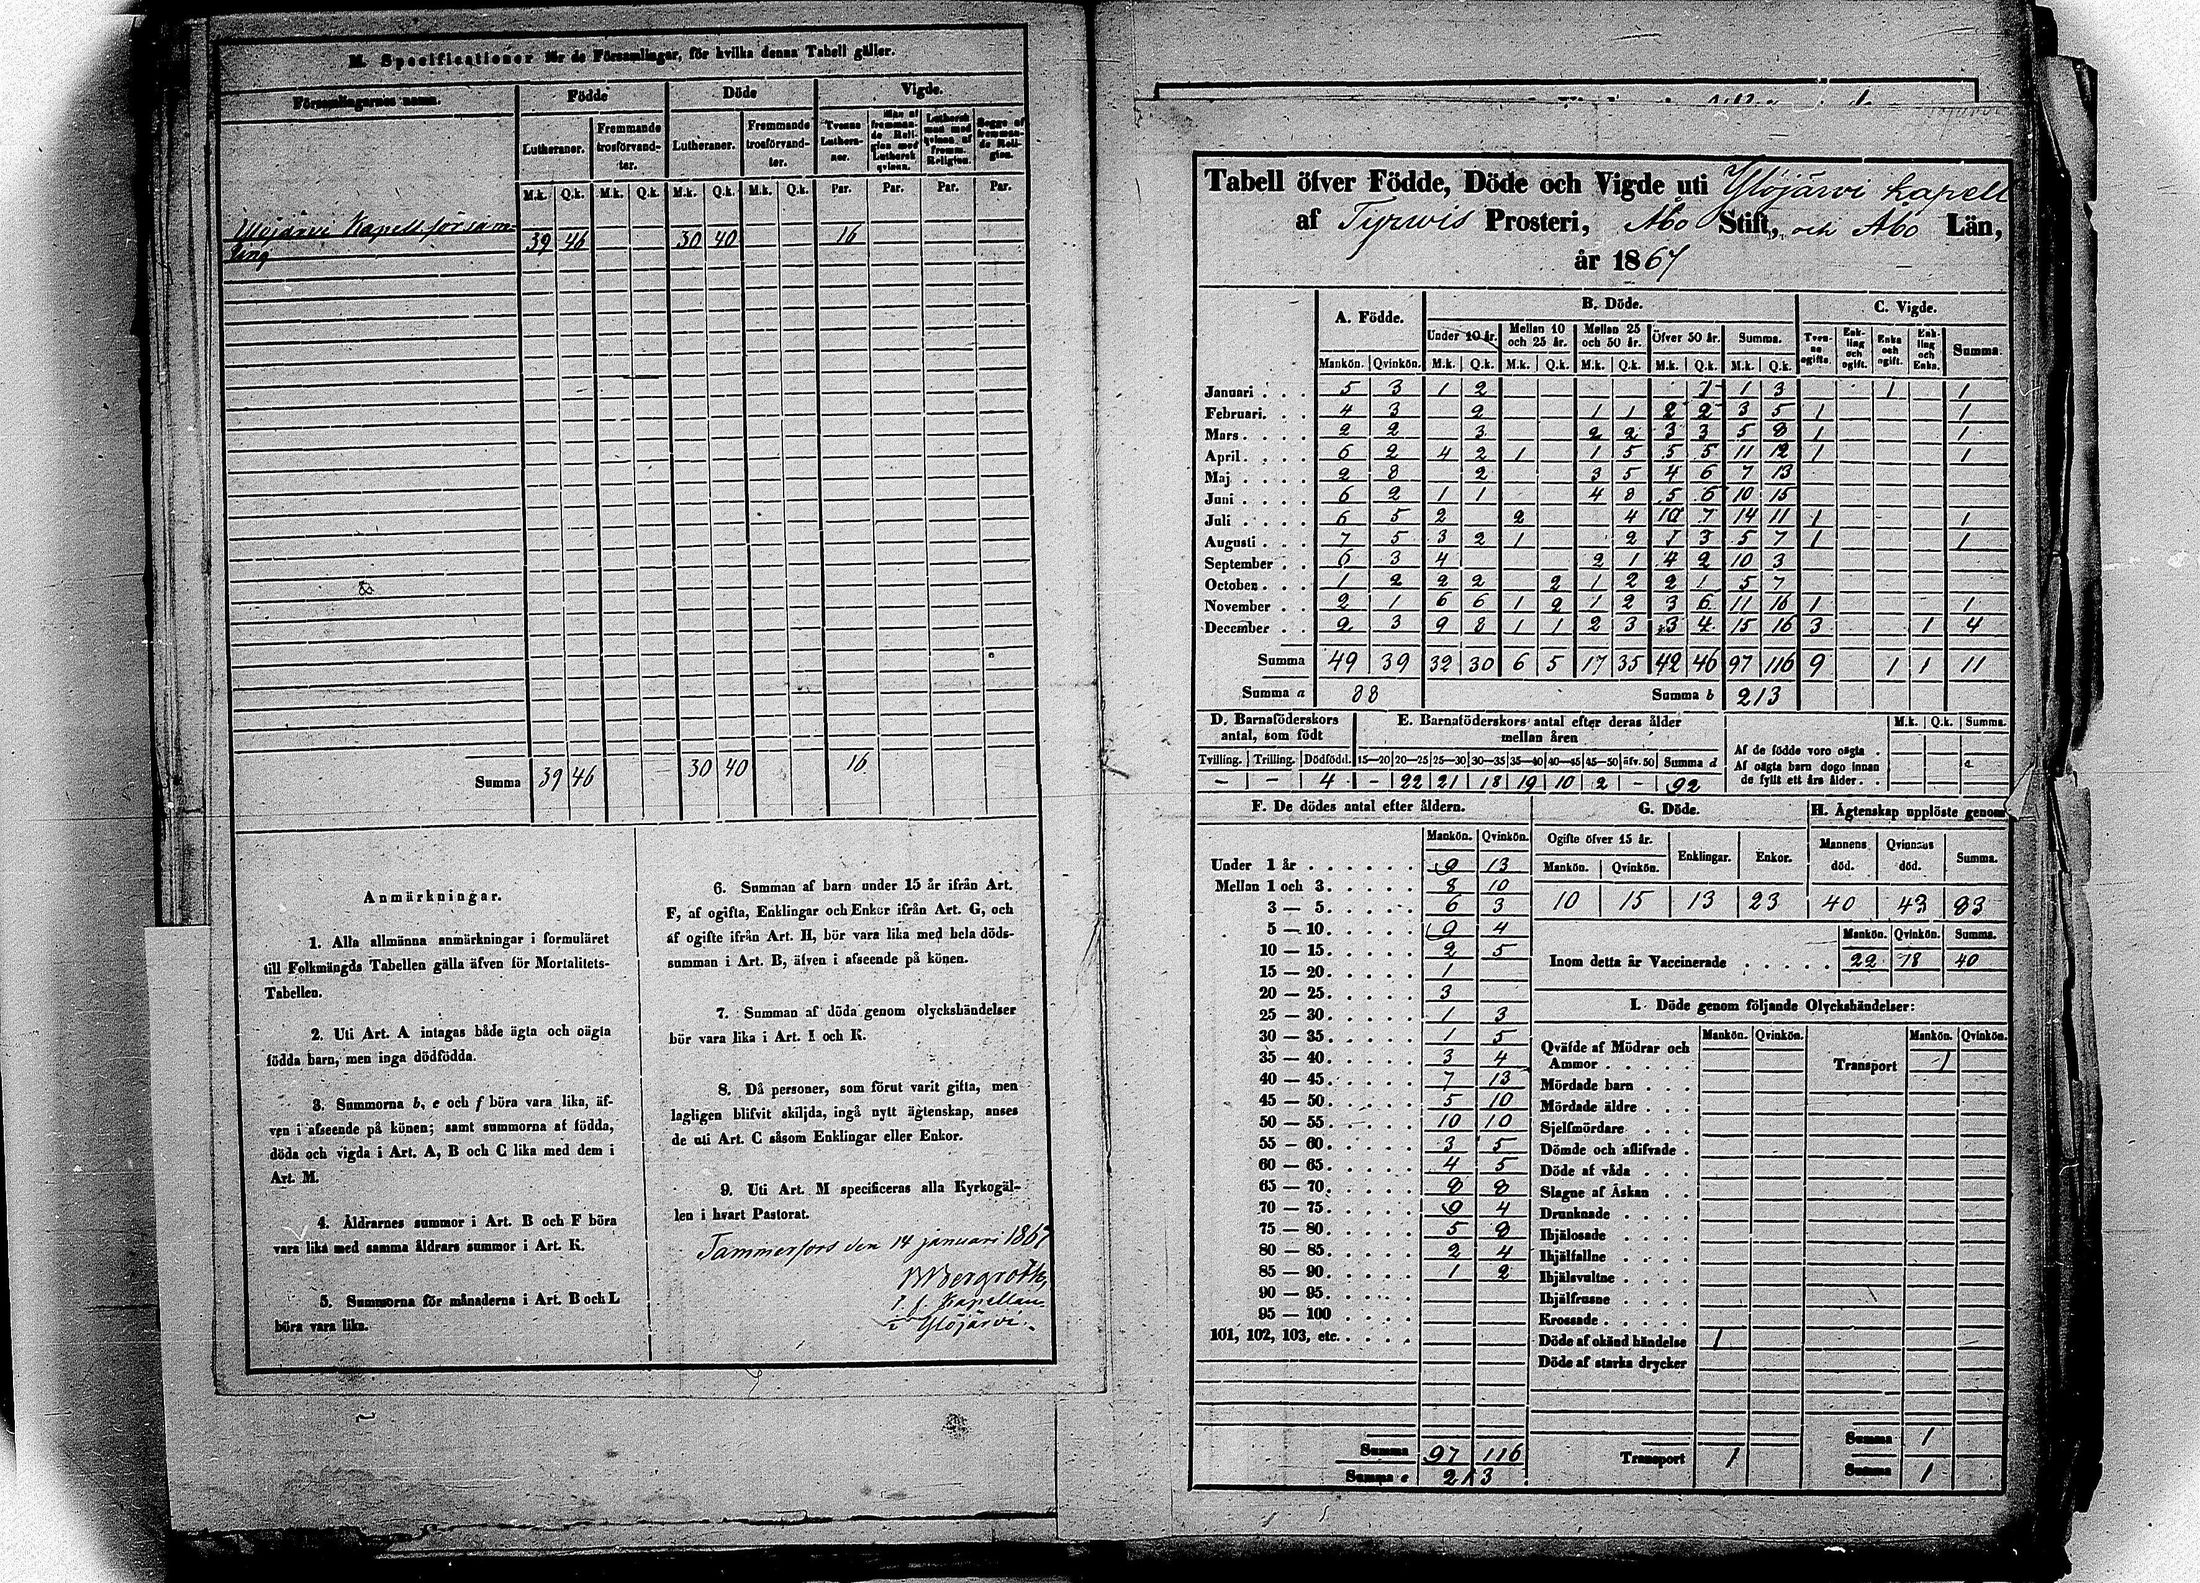 M. Specificationer för de Församlingar, för hvilka denna Tabell gäller.
Församlingarnes namn. Födde Döde Vigde.
Lutheraner. Fremmande trosförvandter. Lutheraner. Fremmande trosförvandter. Tvenne Lutheraner. Man af fremmande Religion med Luthersk qvinna. Luthersk man med qvinna af fremm. Religion. Begge af fremmande Religion.
M.k. Q.k. M.k. Q.k. M.k. Q.k. M.k. Q.k. Par. Par. Par. Par.
Ylöjärvi Kapell församling 39 46 30 40 16
Summa 39 46 30 40 16
Anmärkningar.
1. Alla allmänna anmärkningar i formuläret
till Folkmängds Tabellen gälla äfven för Mortalitets-
Tabellen.
2. Uti Art. A intagas både ägta och oägta
födda barn, men inga dödfödda.
3. Summorna b, e och f böra vara lika, äf-
ven i afseende på könen; samt summorna af födda,
döda och vigda i Art. A, B och C lika med dem i
Art. M.
4. Åldrarnes summor i Art. B och F böra
vara lika med samma åldrars summor i Art. K.
5. Summorna för månaderna i Art. B och L
böra vara lika.
6. Summan af barn under 15 år ifrån Art.
F, af ogifta, Enklingar och Enkor ifrån Art. G, och
af ogifte ifrån Art. H, bör vara lika med hela döds-
summan i Art. B, äfven i afseende på könen.
7. Summan af döda genom olyckshändelser
bör vara lika i Art. I och K.
8. Då personer, som förut varit gifta, men
lagligen blifvit skiljda, ingå nytt ägtenskap, anses
de uti Art. C såsom Enklingar eller Enkor.
9. Uti Art. M specificeras alla Kyrkogäl-
len i hvart Pastorat.
Tammerfors den 14 januari 1867
Bergroth,
Kapellan
i Ylöjärvi.
Tabell öfver Födde, Döde och Vigde uti Ylöjärvi kapell
af Tyrwis Prosteri, Åbo Stift, och Åbo Län,
år 1867
A. Födde. B. Döde. C. Vigde.
Under 10 år. Mellan 10 och 25 år. Mellan 25 och 50 år. Öfver 50 år. Summa. Tvenne ogifta. Enkling och ogift. Enka och ogift. Enkling och Enka. Summa.
Mankön. Qvinkön. M.k. Q.k. M.k. Q.k. M.k. Q.k. M.k. Q.k. M.k. Q.k.
Januari 5 3 1 2 1 1 3 1 1
Februari 4 3 2 1 1 2 2 3 5 1 1
Mars 2 2 3 2 2 3 3 5 8 1 1
April 6 2 4 2 1 1 5 5 5 11 12 1 1
Maj 2 8 2 3 5 4 6 7 13
Juni 6 2 1 1 4 8 5 6 10 15
Juli 6 5 2 2 4 10 7 14 11 1 1
Augusti 7 5 3 2 1 2 1 3 5 7 1 1
September 6 3 4 2 1 4 2 10 3
October 1 2 2 2 2 1 2 2 1 5 7
November 2 1 6 6 1 2 1 2 3 6 11 16 1 1
December 2 3 9 8 1 1 2 3 3 4 15 16 3 1 4
Summa 49 39 32 30 6 5 17 35 42 46 97 116 9 1 1 11
Summa a 88 Summa b 213
D. Barnaföderskors antal, som födt
Tvilling. Trilling. Dödfödd.
– – 4
E. Barnaföderskors antal efter deras ålder mellan åren
15—20 20—25 25—30 30—35 35—40 40—45 45—50 öfv. 50 Summa d
– 22 21 18 19 10 2 – 92
M.k. Q.k. Summa.
Af de födde voro oägta
Af oägta barn dogo innan
de fyllt ett års ålder
F. De dödes antal efter åldern.
Mankön. Qvinkön.
Under 1 år 9 13
Mellan 1 och 3 8 10
3 — 5 6 3
5 — 10 9 4
10 — 15 2 5
15 — 20 1
20 — 25 3
25 — 30 1 3
30 — 35 1 5
35 — 40 3 4
40 — 45 7 13
45 — 50 5 10
50 — 55 10 10
55 — 60 3 5
60 — 65 4 5
65 — 70 8 8
70 — 75 9 4
75 — 80 5 8
80 — 85 2 4
85 — 90 1 2
90 — 95
95 — 100
101, 102, 103, etc.
Summa 97 116
Summa e 213
G. Döde.
Ogifte öfver 15 år. Enklingar. Enkor.
Mankön. Qvinkön.
10 15 13 23
H. Ägtenskap upplöste genom
Mannens död. Qvinnans död. Summa.
40 43 83
Mankön. Qvinkön. Summa.
Inom detta år Vaccinerade 22 18 40
I. Döde genom följande Olyckshändelser:
Mankön. Qvinkön. Mankön. Qvinkön.
Qväfde af Mödrar och Ammor Transport 1
Mördade barn
Mördade äldre
Sjelfmördare
Dömde och aflifvade
Döde af våda
Slagne af Åskan
Drunknade
Ihjälosade
Ihjälfallne
Ihjälsvultne
Ihjälfrusne
Krossade
Döde af okänd händelse 1
Döde af starka drycker
Summa 1
Transport 1
Summa 1